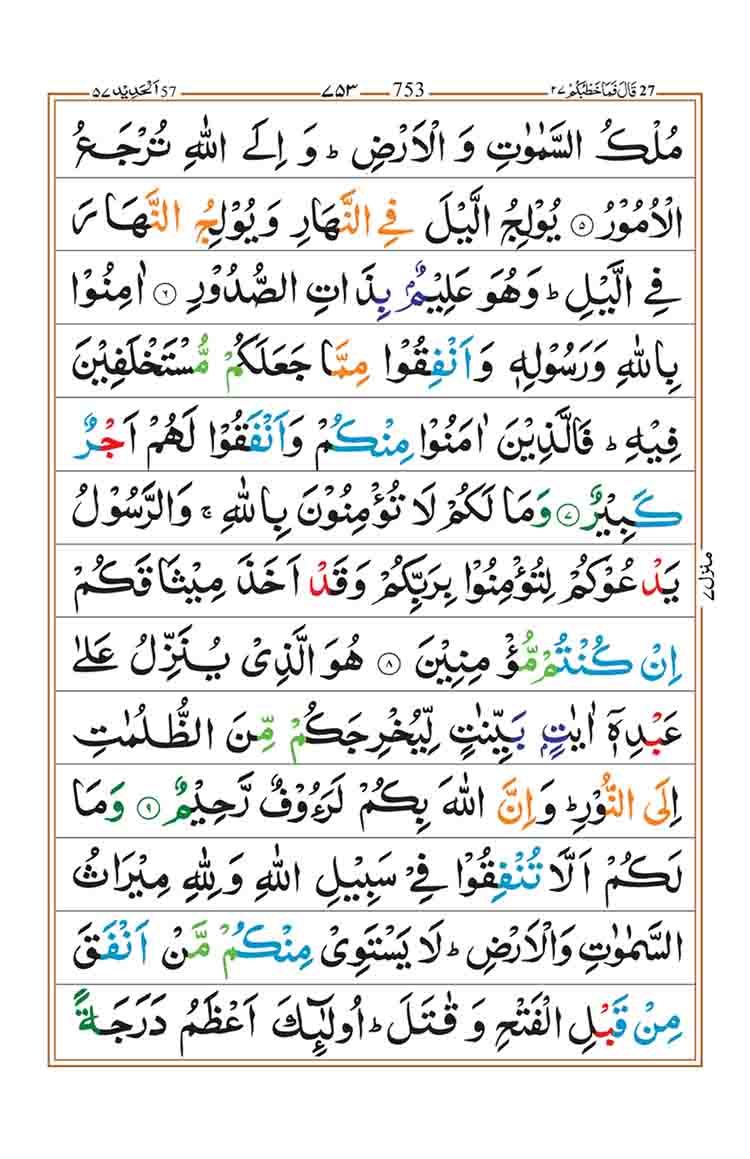 27 قَالَ فَمَا خَطْبُكُمْ ٢٧
753 ٧٥٣
57 اَلْحَدِيْد ٥٧
مُلْكُ السَّمٰوٰتِ وَ الْاَرْضِ ؕ وَ اِلَى اللّٰهِ تُرْجَعُ
الْاُمُوْرُ ۝٥ يُوْلِجُ الَّيْلَ فِي النَّهَارِ وَيُوْلِجُ النَّهَارَ
فِي الَّيْلِ ؕ وَهُوَ عَلِيْمٌۢ بِذَاتِ الصُّدُوْرِ ۝٦ اٰمِنُوْا
بِاللّٰهِ وَرَسُوْلِهٖ وَاَنْفِقُوْا مِمَّا جَعَلَكُمْ مُّسْتَخْلَفِيْنَ
فِيْهِ ؕ فَالَّذِيْنَ اٰمَنُوْا مِنْكُمْ وَاَنْفَقُوْا لَهُمْ اَجْرٌ
كَبِيْرٌ ۝٧ وَمَا لَكُمْ لَا تُؤْمِنُوْنَ بِاللّٰهِ ۚ وَالرَّسُوْلُ
يَدْعُوْكُمْ لِتُؤْمِنُوْا بِرَبِّكُمْ وَقَدْ اَخَذَ مِيْثَاقَكُمْ
اِنْ كُنْتُمْ مُّؤْمِنِيْنَ ۝٨ هُوَ الَّذِيْ يُنَزِّلُ عَلٰى
عَبْدِهٖۤ اٰيٰتٍۭ بَيِّنٰتٍ لِّيُخْرِجَكُمْ مِّنَ الظُّلُمٰتِ
اِلَى النُّوْرِ ؕ وَاِنَّ اللّٰهَ بِكُمْ لَرَءُوْفٌ رَّحِيْمٌ ۝٩ وَمَا
لَكُمْ اَلَّا تُنْفِقُوْا فِيْ سَبِيْلِ اللّٰهِ وَلِلّٰهِ مِيْرَاثُ
السَّمٰوٰتِ وَالْاَرْضِ ؕ لَا يَسْتَوِيْ مِنْكُمْ مَّنْ اَنْفَقَ
مِنْ قَبْلِ الْفَتْحِ وَ قٰتَلَ ؕ اُولٰٓئِكَ اَعْظَمُ دَرَجَةً
منزل ٧